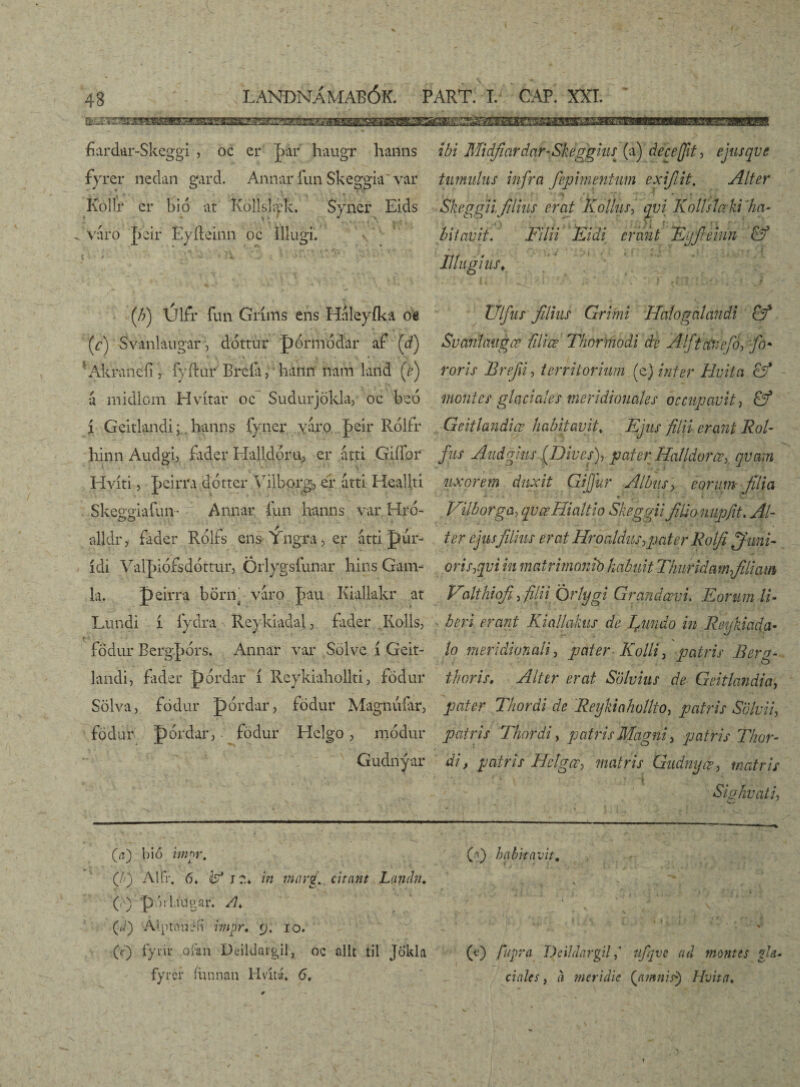 48 LANDNÁMABÓK. PART. I. CAP. XXI.
fiardar-Skeggi , oc er þar haugr hanns
fyrer nedan gard. Annar ſun Skeggia var
Kollr er bió at Kollslæk. Syner Eids
váro þeir Eyſteinn oc Illugi.
(b) Úlfr ſun Gríms ens Háleyſka oc
(c) Svanlaugar, dóttur þórmódar af (d)
Akraneſi, ſyſtur Breſa, hann nam land (e)
á midlom Hvítar oc Sudurjökla, oc beó
í Geitlandi; hanns ſyner váro þeir Rólfr
hinn Audgi, fader Halldóru, er átti Giſſor
Hvíti, þeirra dótter Vilborg, er átti Heallti
Skeggiaſun. Annar ſun hanns var Hró-
alldr, fader Rólfs ens Yngra, er átti þur-
ídi Valþiófsdóttur, Örlygsſunar hins Gam-
la. þeirra börn váro þau Kiallakr at
Lundi í ſydra Reykiadal, fader Kolls,
födur Bergþórs. Annar var Sölve í Geit-
landi, fader þórdar í Reykiahollti, födur
Sölva, födur þórdar, födur Magnúſar,
födur þórdar, födur Helgo, módur
Gudnýar
ibi Midfiardar-Skeggius (a) deceſſit, ejusqve
tumulus infra ſepimentum exiſtit. Alter
Skeggii filius erat Kollus, qvi Kollslæki ha-
bitavit. Filii Eidi erant Eyſteinn &
Illugius.
Ulfus filius Grimi Halogalandi &
Svanlaugæ filiæ Thormodi de Alftaneſo, ſo-
roris Breſii, territorium (e) inter Hvita &
montes glaciales meridionales occupavit, &
Geitlandiæ habitavit. Ejus filii erant Rol-
fus Audgius (Dives), pater Halldoræ, qvam
uxorem duxit Giſſur Albus, eorum filia
Vilborga, qvæ Hialtio Skeggii filio nupſit. Al-
ter ejus filius erat Hroaldus, pater Rolfi Juni-
oris, qvi in matrimonio habuit Thuridam, filiam
Valthiofi, filii Örlygi Grandævi. Eorum li-
beri erant Kiallakus de Lundo in Reykiada-
lo meridionali, pater Kolli, patris Berg-
thoris. Alter erat Sölvius de Geitlandia,
pater Thordi de Reykiahollto, patris Sölvii,
patris Thordi, patris Magni, patris Thor-
di, patris Helgæ, matris Gudnyæ, matris
Sighvati,
(a) bió impr.
(b) Allr. 6. & 12. in marg. citant Landn.
(c) þórlaugar. A.
(d) Alptaneſi impr. 9. 10.
(e) fyrir ofan Deildargil, oc allt til Jökla
fyrer ſunnan Hvítá. 6.
(a) habitavit.
(e) ſupra Deildargil, uſqve ad montes gla-
ciales, à meridie (amnis) Hvita.